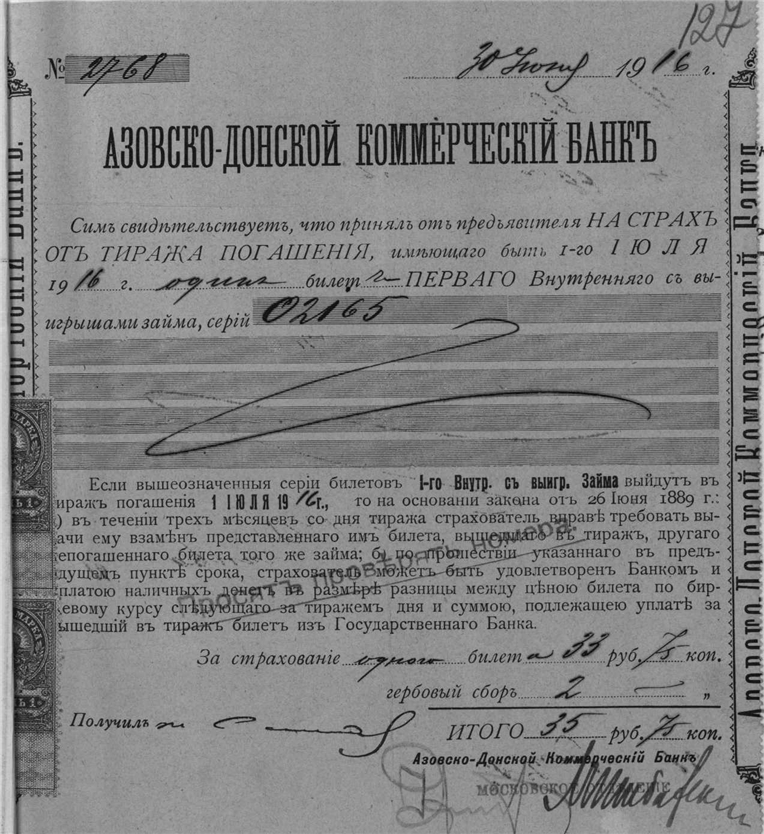 127
№ 2768
30 Июня 1916 г.
АЗОВСКО-ДОНСКОЙ КОММЕРЧЕСКІЙ БАНКЪ
Симъ свидѣтельствуетъ, что принялъ отъ предъявителя НА СТРАХЪ
ОТЪ ТИРАЖА ПОГАШЕНІЯ, имѣющаго быть 1-го ІЮЛЯ
1916 г. одинъ билетъ ПЕРВАГО Внутренняго съ вы-
игрышами займа, серій 02165
Если вышеозначенныя серіи билетовъ 1-го Внутр. съ выигр. Займа выйдутъ въ
тиражъ погашенія 1 ІЮЛЯ 1916 г., то на основаніи закона отъ 26 Іюня 1889 г.:
) въ теченіи трехъ мѣсяцевъ со дня тиража страхователь вправѣ требовать вы-
дачи ему взамѣнъ представленнаго имъ билета, вышедшаго въ тиражъ, другаго
непогашеннаго билета того же займа; б) по прошествіи указаннаго въ пред-
ыдущемъ пунктѣ срока, страхователь можетъ быть удовлетворенъ Банкомъ и
уплатою наличныхъ денегъ въ размѣрѣ разницы между цѣною билета по бир-
жевому курсу слѣдующаго за тиражемъ дня и суммою, подлежащею уплатѣ за
вышедшій въ тиражъ билетъ изъ Государственнаго Банка.
Просятъ провѣрять номера.
За страхованіе одного билета 33 руб. 75 коп.
гербовый сборъ 2 — „
Получилъ
ИТОГО 35 руб. 75 коп.
Азовско-Донской Коммерческій Банкъ
МОСКОВСКОЕ ОТДѢЛЕНІЕ
Азовско-Донской Коммерческій Банкъ